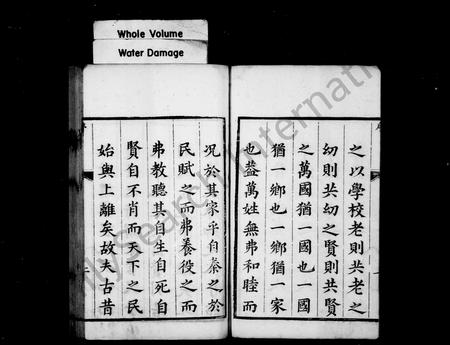 Whole Volume
Water Damage
之以學校老則共老之
幼則共幼之賢則共賢
之萬國猶一國也一國
猶一鄉也一鄉猶一家
也蓋萬姓無弗和睦而
况於其家乎自秦之於
民賦之而弗養役之而
弗教聽其自生自死自
賢自不肖而天下之民
始與上離矣故夫古昔